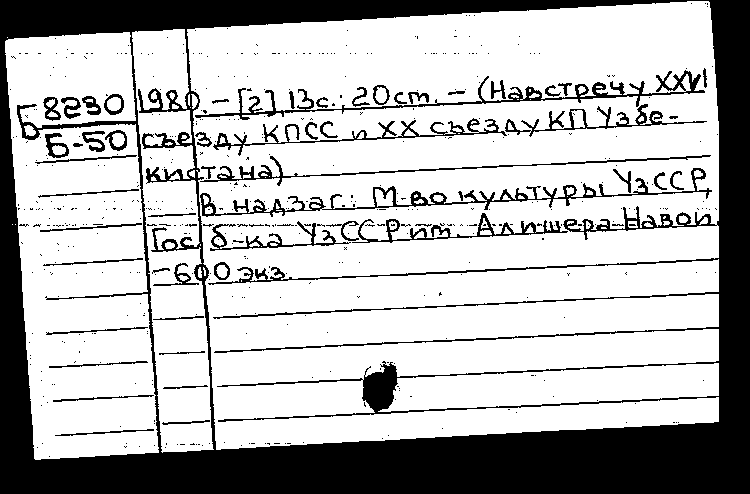 Б 8230
Б-50
1980. – [2], 13с.; 20ст. – (Навстречу XXVI
съезду КПСС и XX съезду КП Узбе-
кистана).
В надзаг.: М-во культуры УзССР,
Гос. б-ка УзССР им. Алишера Навои.
– 600 экз.